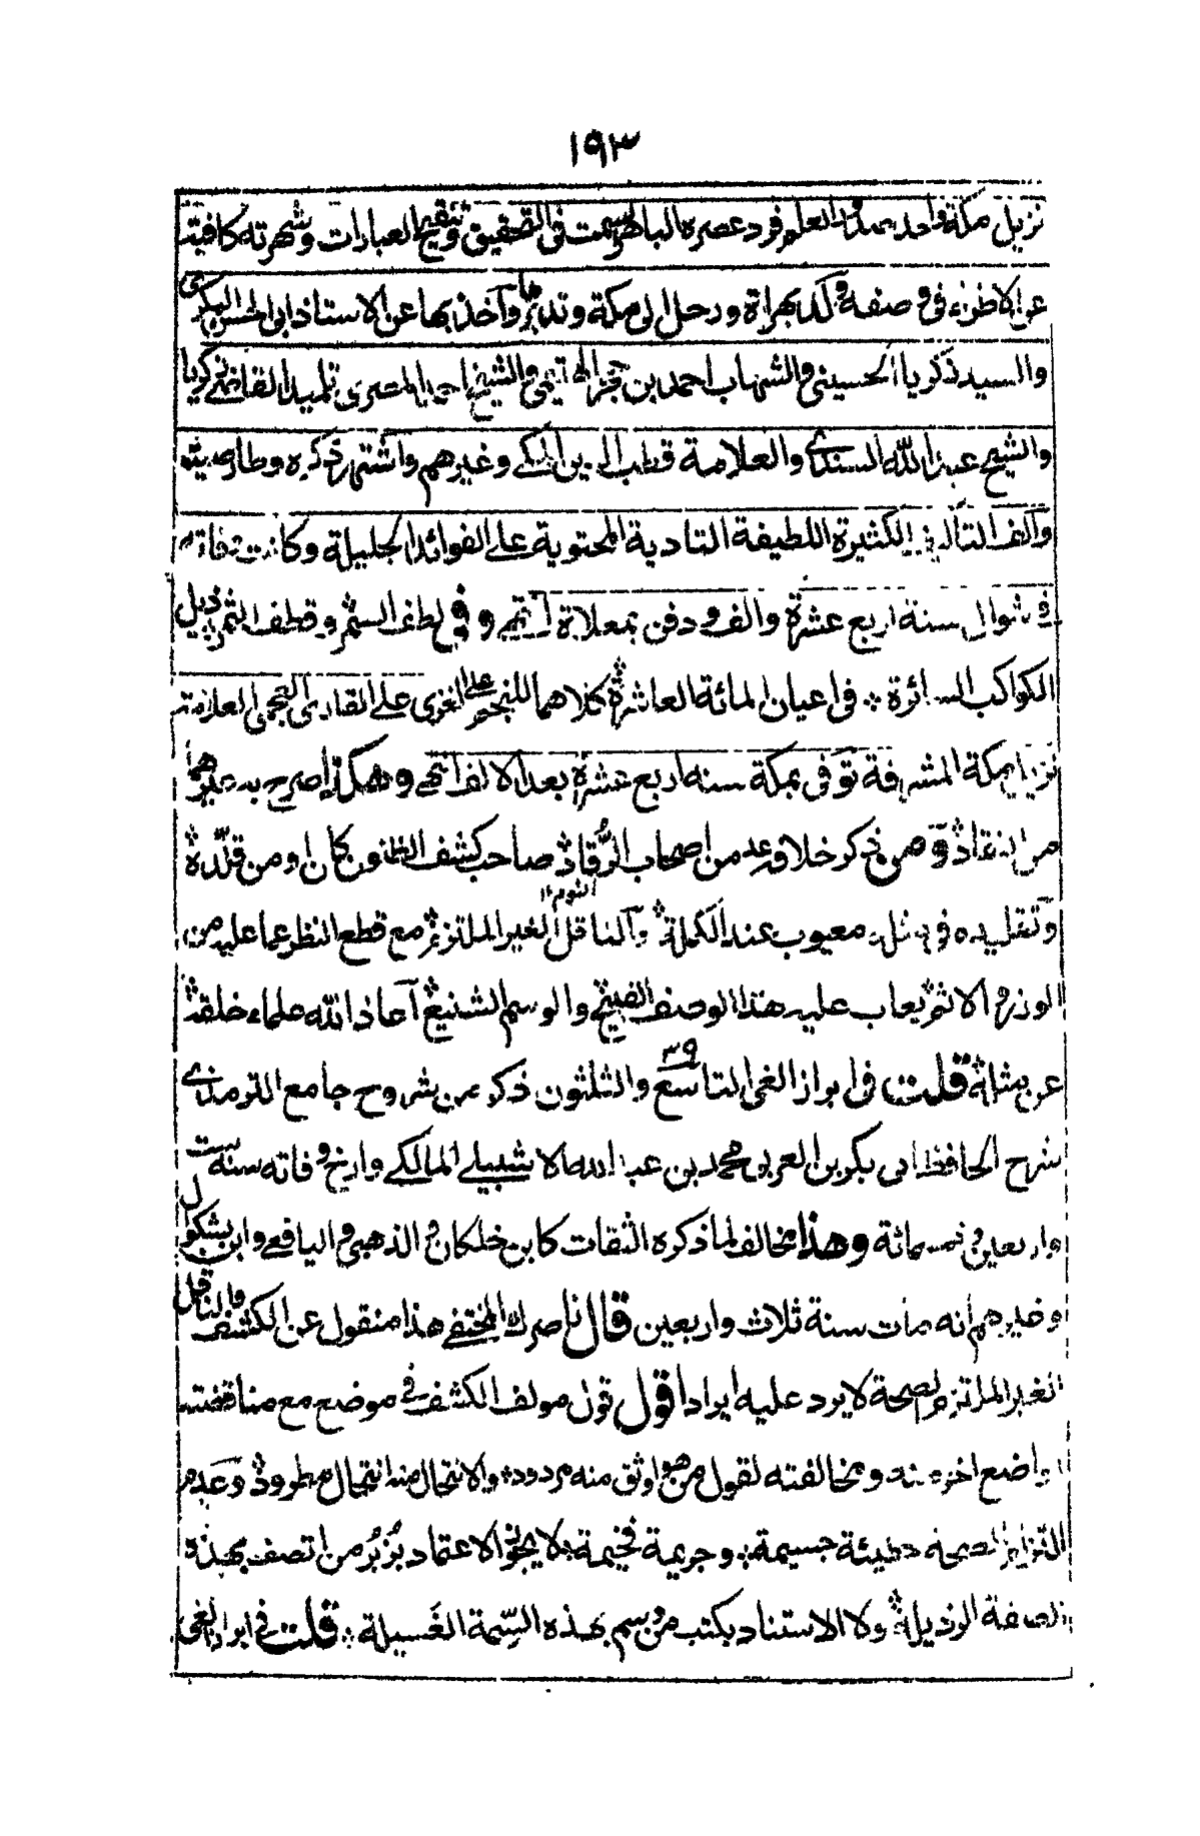 ١٩٣
نزيل مكة واحد صدور العلم فرد عصره الباهر السمت في التحقيق وتنقيح العبارات وشهرته كافية
عن الاطراء في وصفه ولد بهراة ورحل الى مكة وتديرها وآخذ بها عن الاستاذ ابي الحسن البكري
والسيد زكريا الحسيني والشهاب احمد بن حجر الهيتمي والشيخ احمد المصري تلميذ القاضي زكريا
والشيخ عبد الله السندي والعلامة قطب الدين المكي وغيرهم واشتهر ذكره وطار صيته
وآلف التآليف الكثيرة اللطيفة التادية المحتوية على الفوائد الجليلة وكانت وفاته
في شوال سنة اربع عشرة والف ودفن بمعلاة انتهى وفي لطف السمر وقطف الثمر ذيل
الكواكب السائرة في اعيان المائة العاشرة كلاهما للنجم الغزي على القاري العجمي العلامة
نزيل مكة المشرفة توفى بمكة سنه اربع عشرة بعد الالف انتهى وهكذا صرح به غيرهما
من النقاد ومن ذكر خلافه عد من اصحاب الرقاد صاحب كشف الظنون كان او من قلده
النوم ١٢
وتقليده في مثله معيوب عند الكملة وآلناقل الغير الملتزم مع قطع النظر عما عليه من
الوزر والاثم يعاب عليه هذا الوصف القبيح والوسم الشنيع آعاذ الله علماء خلقه
٣٩
عن مثله قلت في ابراز الغي التاسع والثلثون ذكر من شروح جامع الترمذي
شرح الحافظ ابي بكر بن العربي محمد بن عبد الله الاشبيلي المالكي وارخ وفاته سنة ست
واربعين وخمسمائة وهذا مخالف لما ذكره الثقات كابن خلكان والذهبي واليافعي وابن بشكوال
وغيرهم انه مات سنة ثلاث واربعين قال ناصرك المختفي هذا منقول عن الكشف والناقل
الغير الملتزم الصحة لا يرد عليه ايراد اقول قول مولف الكشف في موضع مع مناقضته
مواضع اخر منه ومخالفته لقول من هو اوثق منه مردود والانتحال منه انتحال مطرود وعدم
التزام الصحة خطيئة جسيمة وجريمة فخيمة لا يجوز الاعتماد بزبر من اتصف بهذه
الصفة الرذيلة ولا الاستناد بكتب من وسم بهذه السمة الغسيلة قلت في ابراز الغي